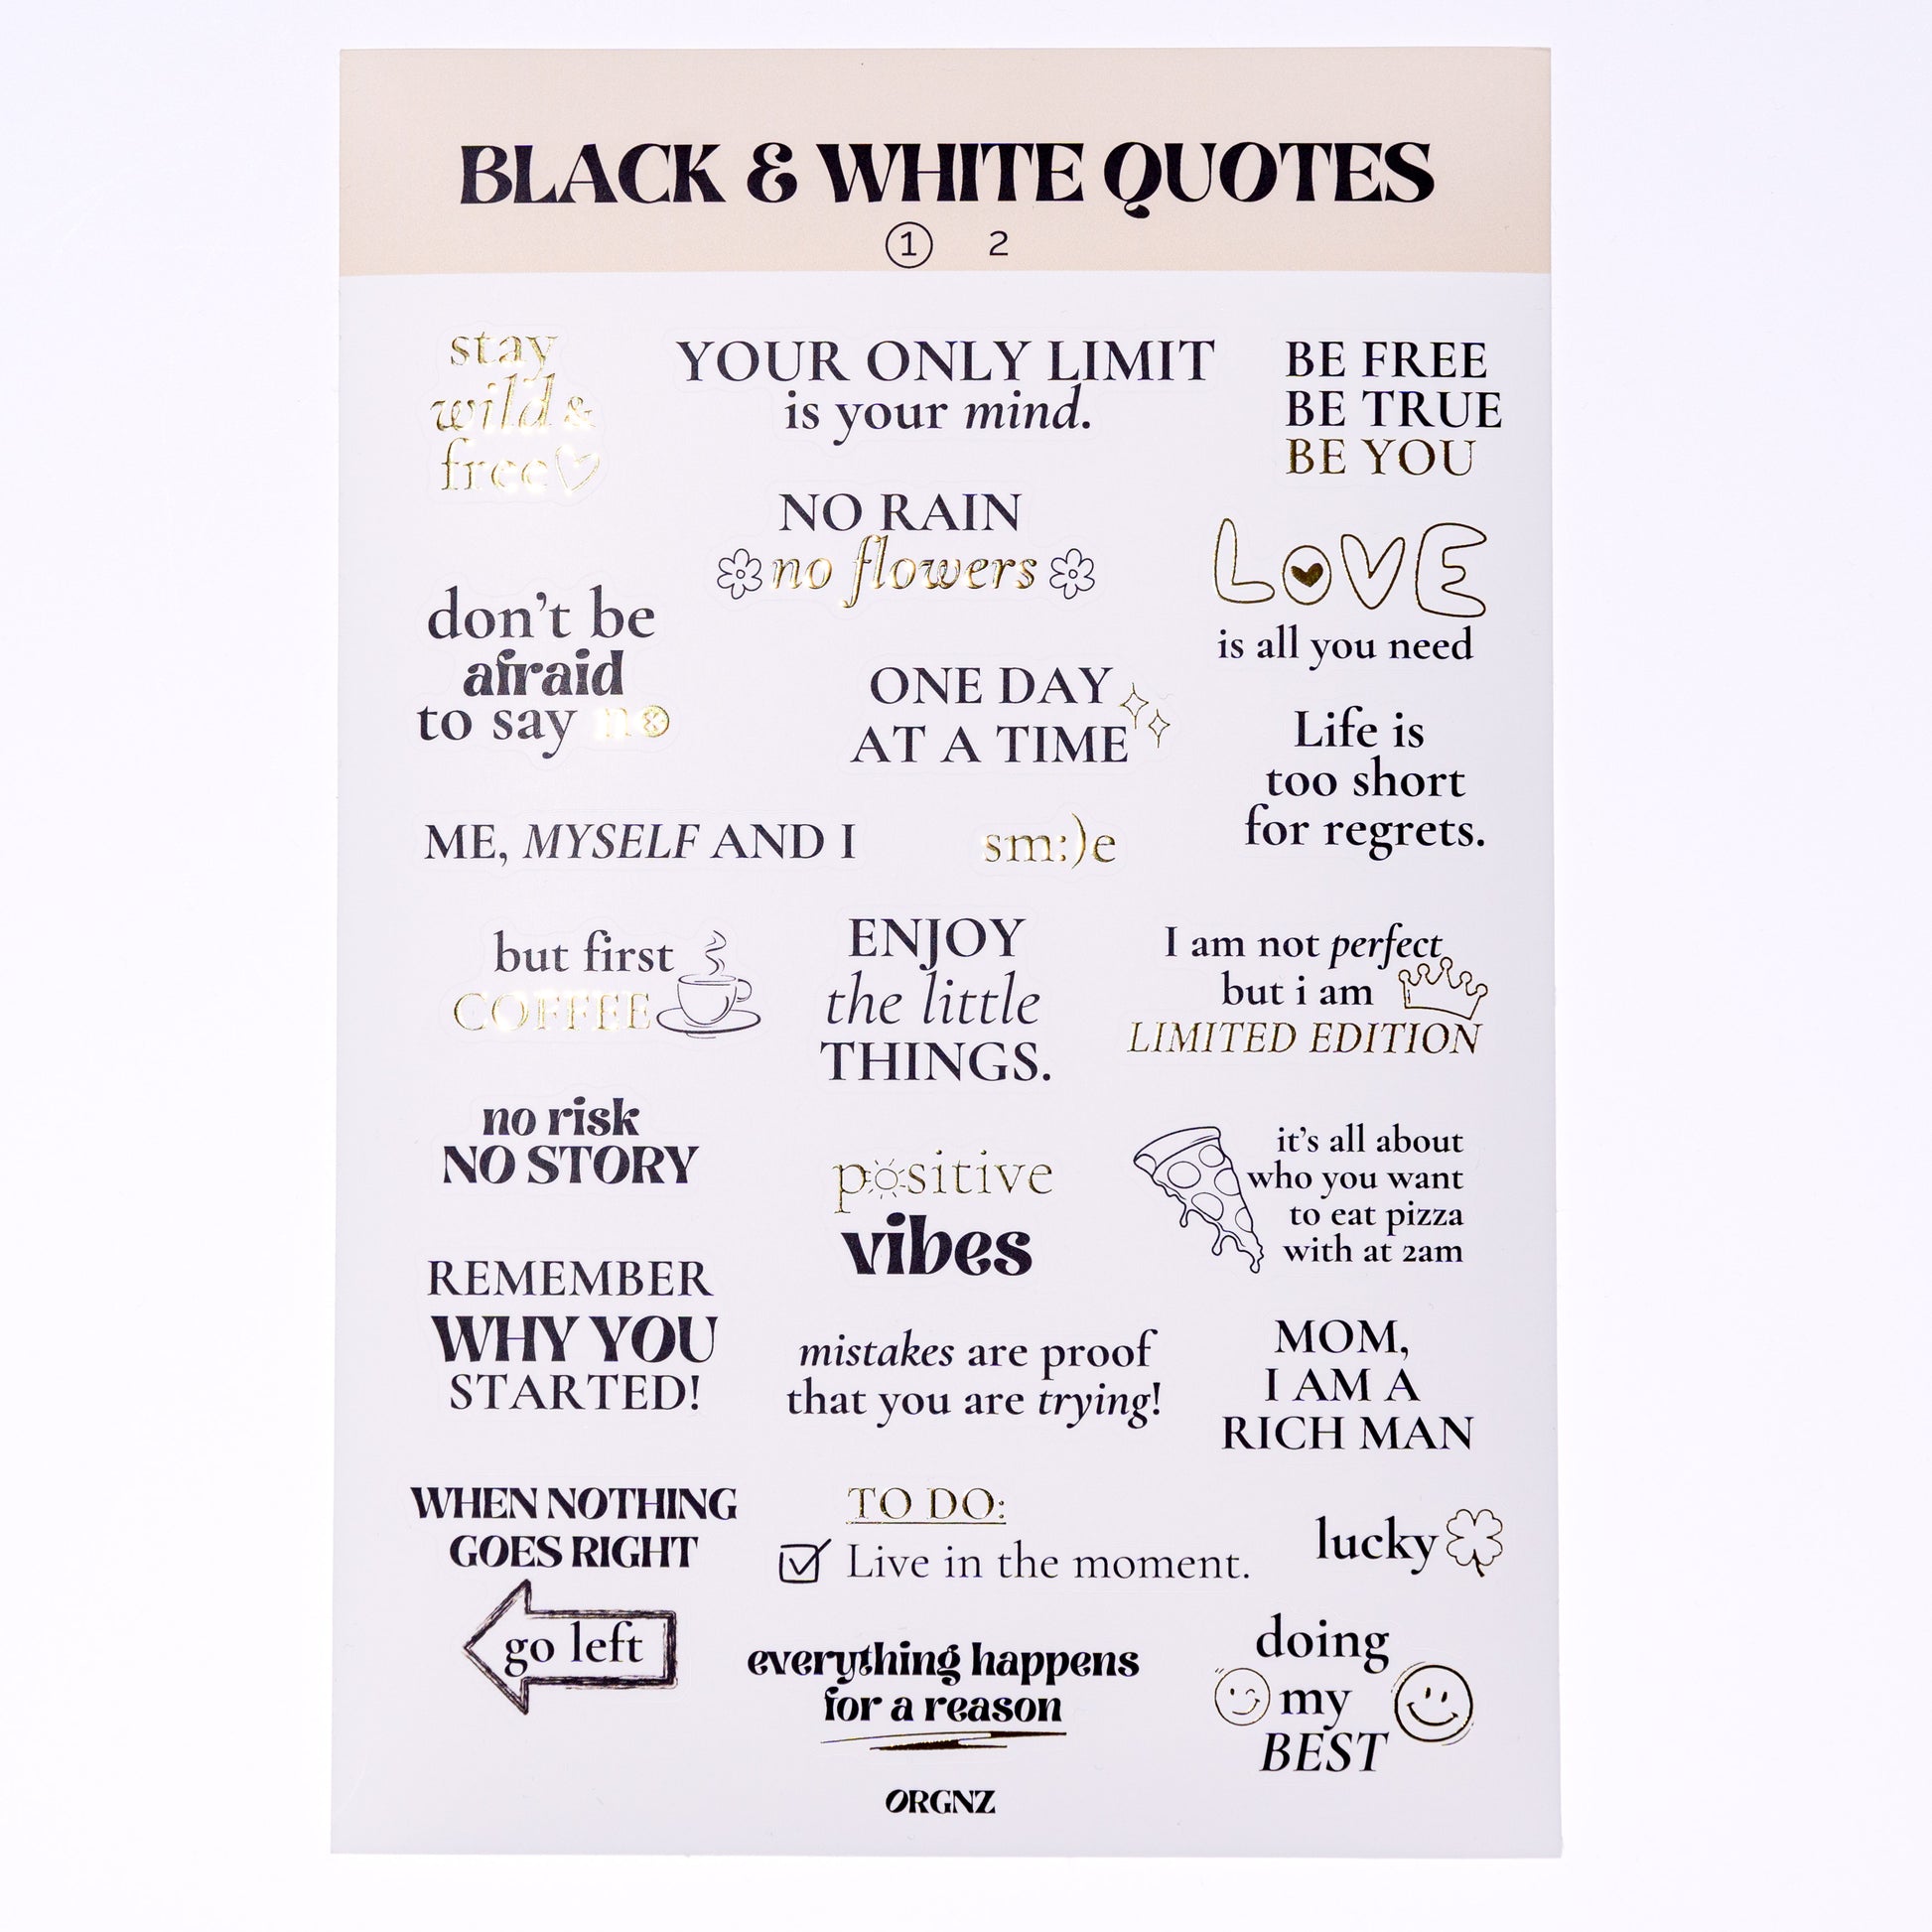 BLACK & WHITE QUOTES
1 2
stay
wild &
free
YOUR ONLY LIMIT
is your mind.
BE FREE
BE TRUE
BE YOU
NO RAIN
no flowers
LOVE
is all you need
don't be
afraid
to say no
ONE DAY
AT A TIME
Life is
too short
for regrets.
ME, MYSELF AND I
sm:)e
but first
COFFEE
ENJOY
the little
THINGS.
I am not perfect
but i am
LIMITED EDITION
no risk
NO STORY
positive
vibes
it's all about
who you want
to eat pizza
with at 2am
REMEMBER
WHY YOU
STARTED!
mistakes are proof
that you are trying!
MOM,
I AM A
RICH MAN
WHEN NOTHING
GOES RIGHT
go left
TO DO:
Live in the moment.
lucky
everything happens
for a reason
doing
my
BEST
ORGNZ